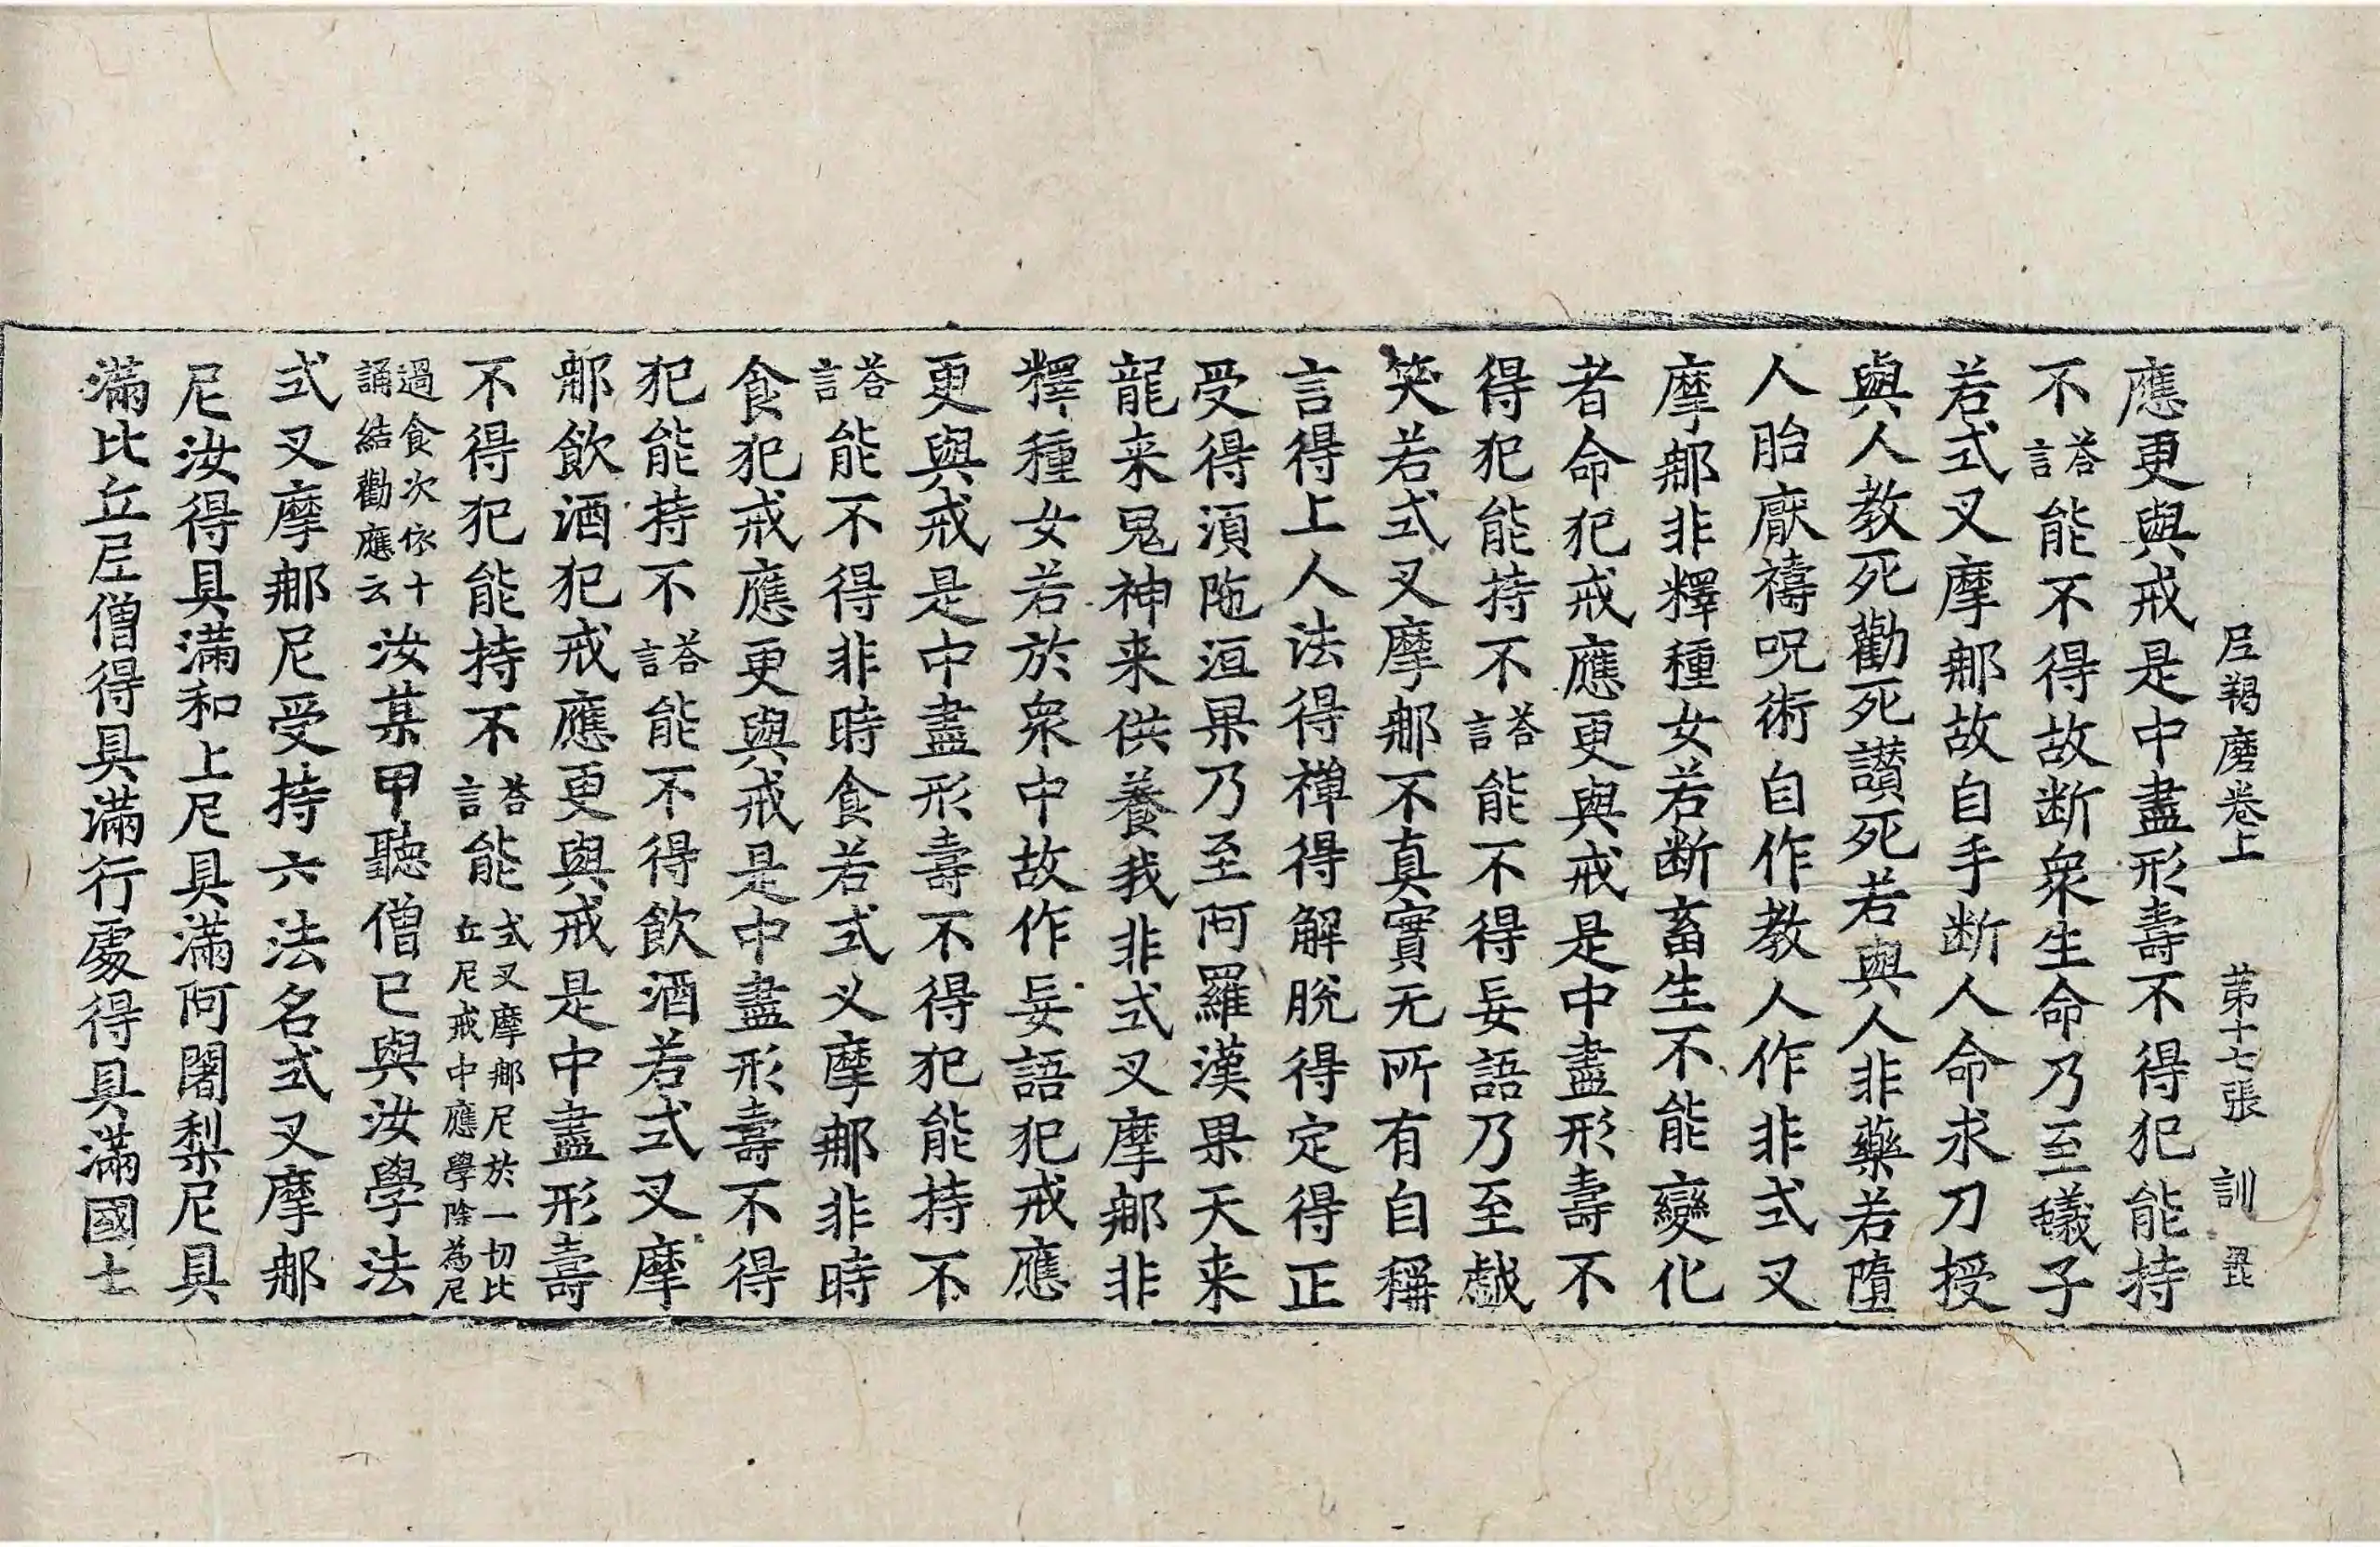 尼羯磨卷上 第十七張 訓
應更與戒是中盡形壽不得犯能持
不荅言能不得故断衆生命乃至蟻子
若式叉摩那故自手断人命求刀授
與人教死勸死讃死若與人非藥若墮
人胎厭禱呪術自作教人作非式叉
摩那非釋種女若断畜生不能變化
者命犯戒應更與戒是中盡形壽不
得犯能持不荅言能不得妄語乃至戯
笑若式叉摩那不真實无所有自稱
言得上人法得禅得解脫得定得正
受得湏陁洹果乃至阿羅漢果天来
龍来鬼神来供養我非式叉摩那非
釋種女若於衆中故作妄語犯戒應
更與戒是中盡形壽不得犯能持不
荅言能不得非時食若式叉摩那非時
食犯戒應更與戒是中盡形壽不得
犯能持不荅言能不得飲酒若式叉摩
那飲酒犯戒應更與戒是中盡形壽
不得犯能持不荅言能式叉摩那尼於一切比丘尼戒中應學除為尼
過食次依十誦結勸應云汝某甲聽僧已與汝學法
式叉摩那尼受持六法名式叉摩那
尼汝得具滿和上尼具滿阿闍梨尼具
滿比丘尼僧得具滿行處得具滿國土